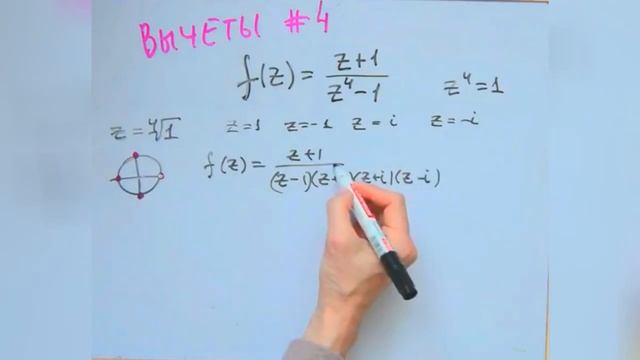 ВЫЧЕТЫ #4
f(z) = z+1 / z⁴-1
z⁴=1
z = ⁴√1 z=1 z=-1 z=i z=-i
f(z) = z+1 / (z-1)(z+ )(z+i)(z-i)